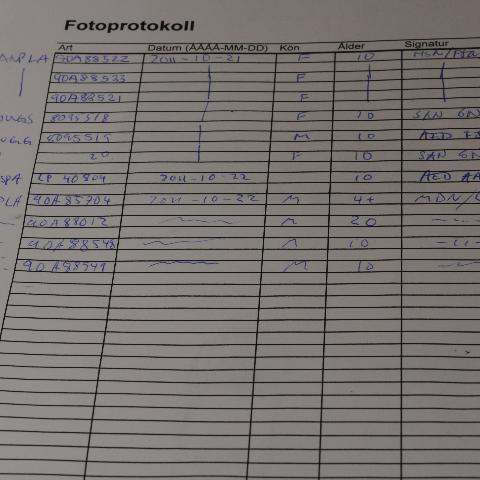 Fotoprotokoll
Art Datum (ÅÅÅÅ-MM-DD) Kön Ålder Signatur
90A88522 2011-10-21 F 10
90A88533 F
90A88521 F
8095518 F 10 SAN
8095519 M 10 AED
20 F 10 SAN
CP 40804 2011-10-22 10 AED
90A85704 2011-10-22 M 4+ MDN/
90A88012 M 20
90A88548 M 10
90A88549 M 10